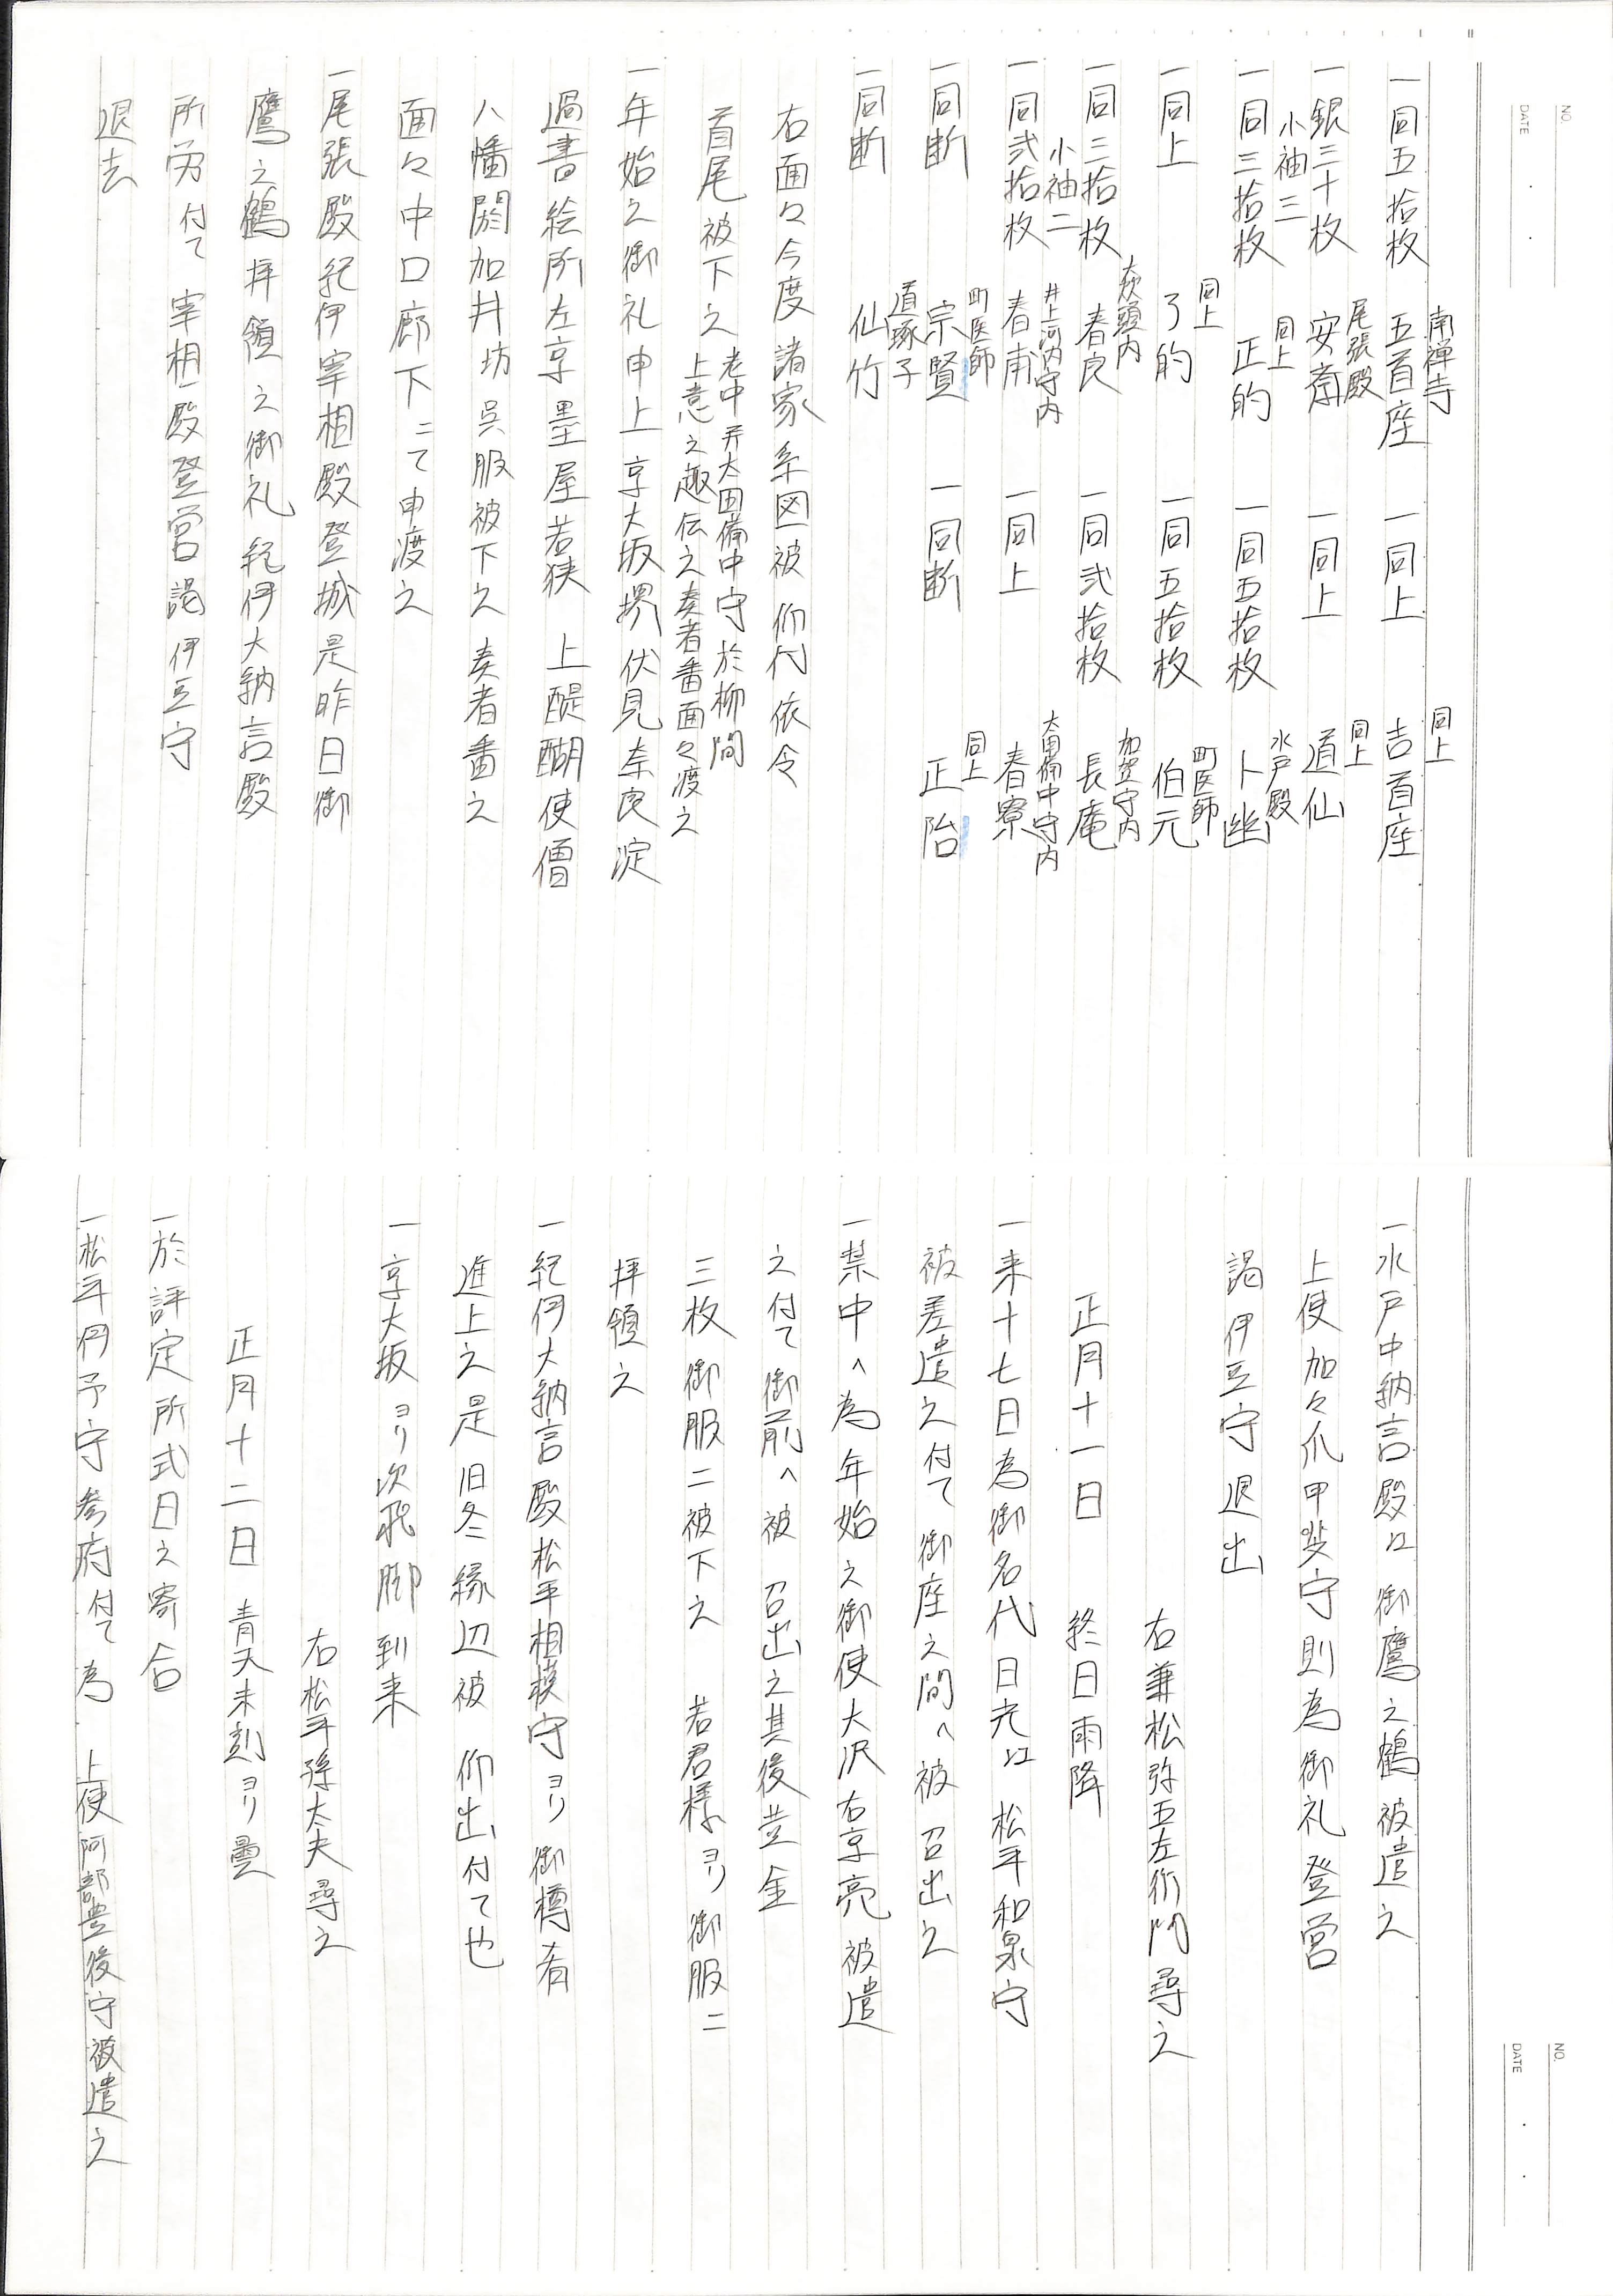 NO.
DATE
南禅寺 同上
一同五拾枚 五首座 一同上 吉首座
尾張殿 同上
一銀三十枚 安斎 一同上 道仙
小袖三 同上 水戸殿
一同三拾枚 正的 一同五拾枚 卜幽
同上 町医師
一同上 了的 一同五拾枚 伯元
大炊頭内 加賀守内
一同三拾枚 春良 一同弐拾枚 長庵
小袖二 井上河内守内 太田備中守内
一同弐拾枚 春甫 一同上 春寮
町医師 同上
一同断 宗賢 一同断 正怡
道琢子
一同断 仙竹
右面々今度諸家系図被 仰付依令
首尾被下之 老中并太田備中守於柳間
上意之趣伝之奏者番面々渡之
一年始之御礼申上京大坂堺伏見奈良淀
過書絵所左京墨屋若狭 上醍醐使僧
八幡閼加井坊呉服被下之奏者番之
面々中口廊下ニて申渡之
一尾張殿紀伊宰相殿登城是昨日御
鷹之鶴拝領之御礼紀伊大納言殿
所労付て 宰相殿登営謁伊豆守
退去
NO.
DATE
一水戸中納言殿江御鷹之鶴被遣之
上使加々爪甲斐守則為御礼登営
謁伊豆守退出
右兼松弥五左衛門尋之
正月十一日 終日雨降
一来十七日為御名代日光江 松平和泉守
被差遣之付て御座之間へ被 召出之
一禁中へ為年始之御使大沢右京亮被遣
之付て御前へ被 召出之其後黄金
三枚御服二被下之 若君様ヨリ御服二
拝領之
一紀伊大納言殿松平相模守ヨリ御樽肴
進上之是旧冬縁辺被 仰出付て也
一京大坂ヨリ次飛脚到来
右松平孫太夫尋之
正月十二日 青天未刻ヨリ曇
一於評定所式日之寄合
一松平伊予守参府付て為 上使阿部豊後守被遣之